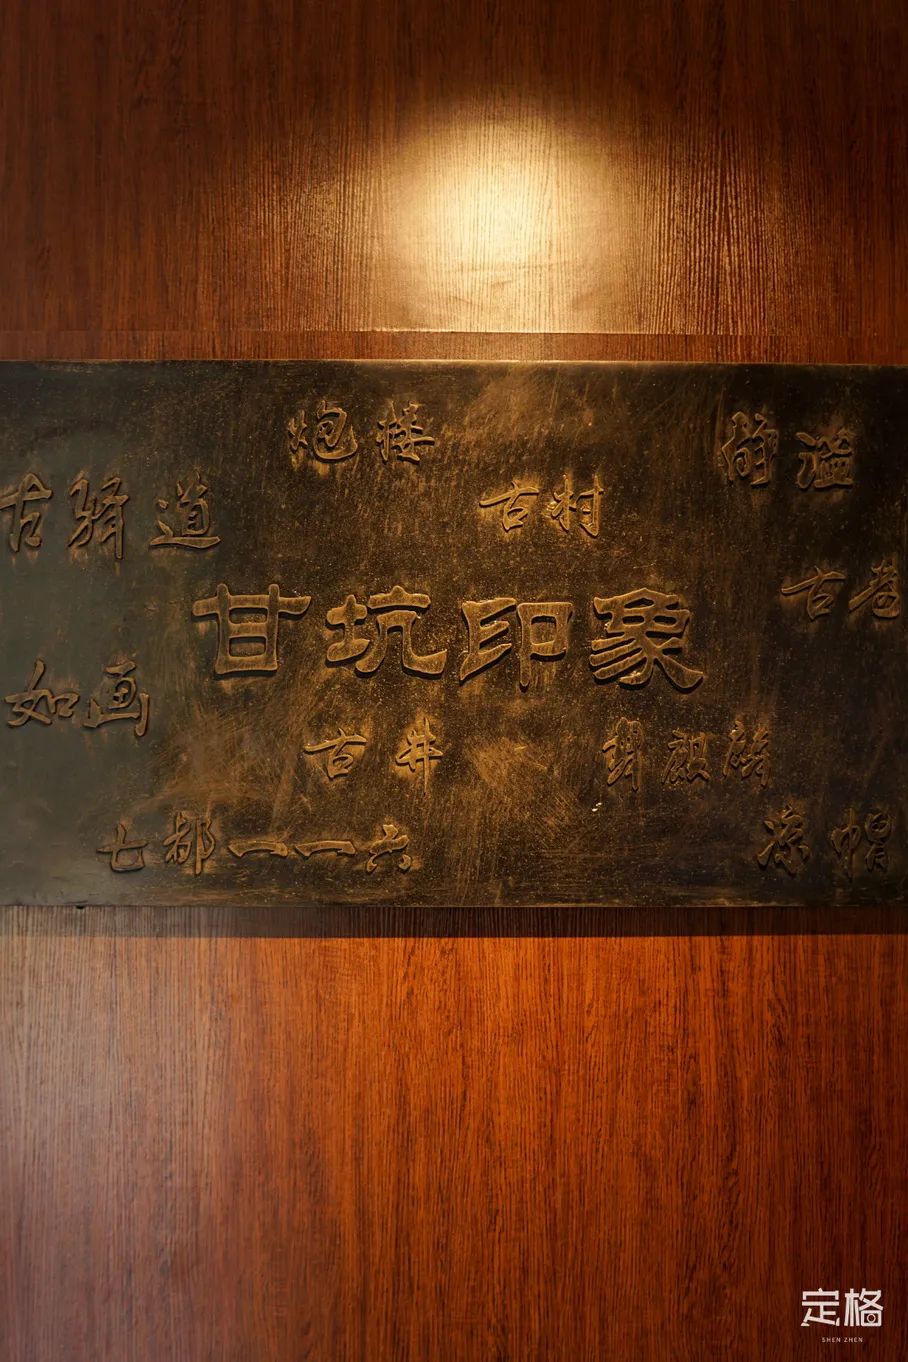 炮楼
古村
古驿道
古巷
甘坑印象
如画
古井
麒麟
七都一一六
凉帽
定格
SHEN ZHEN